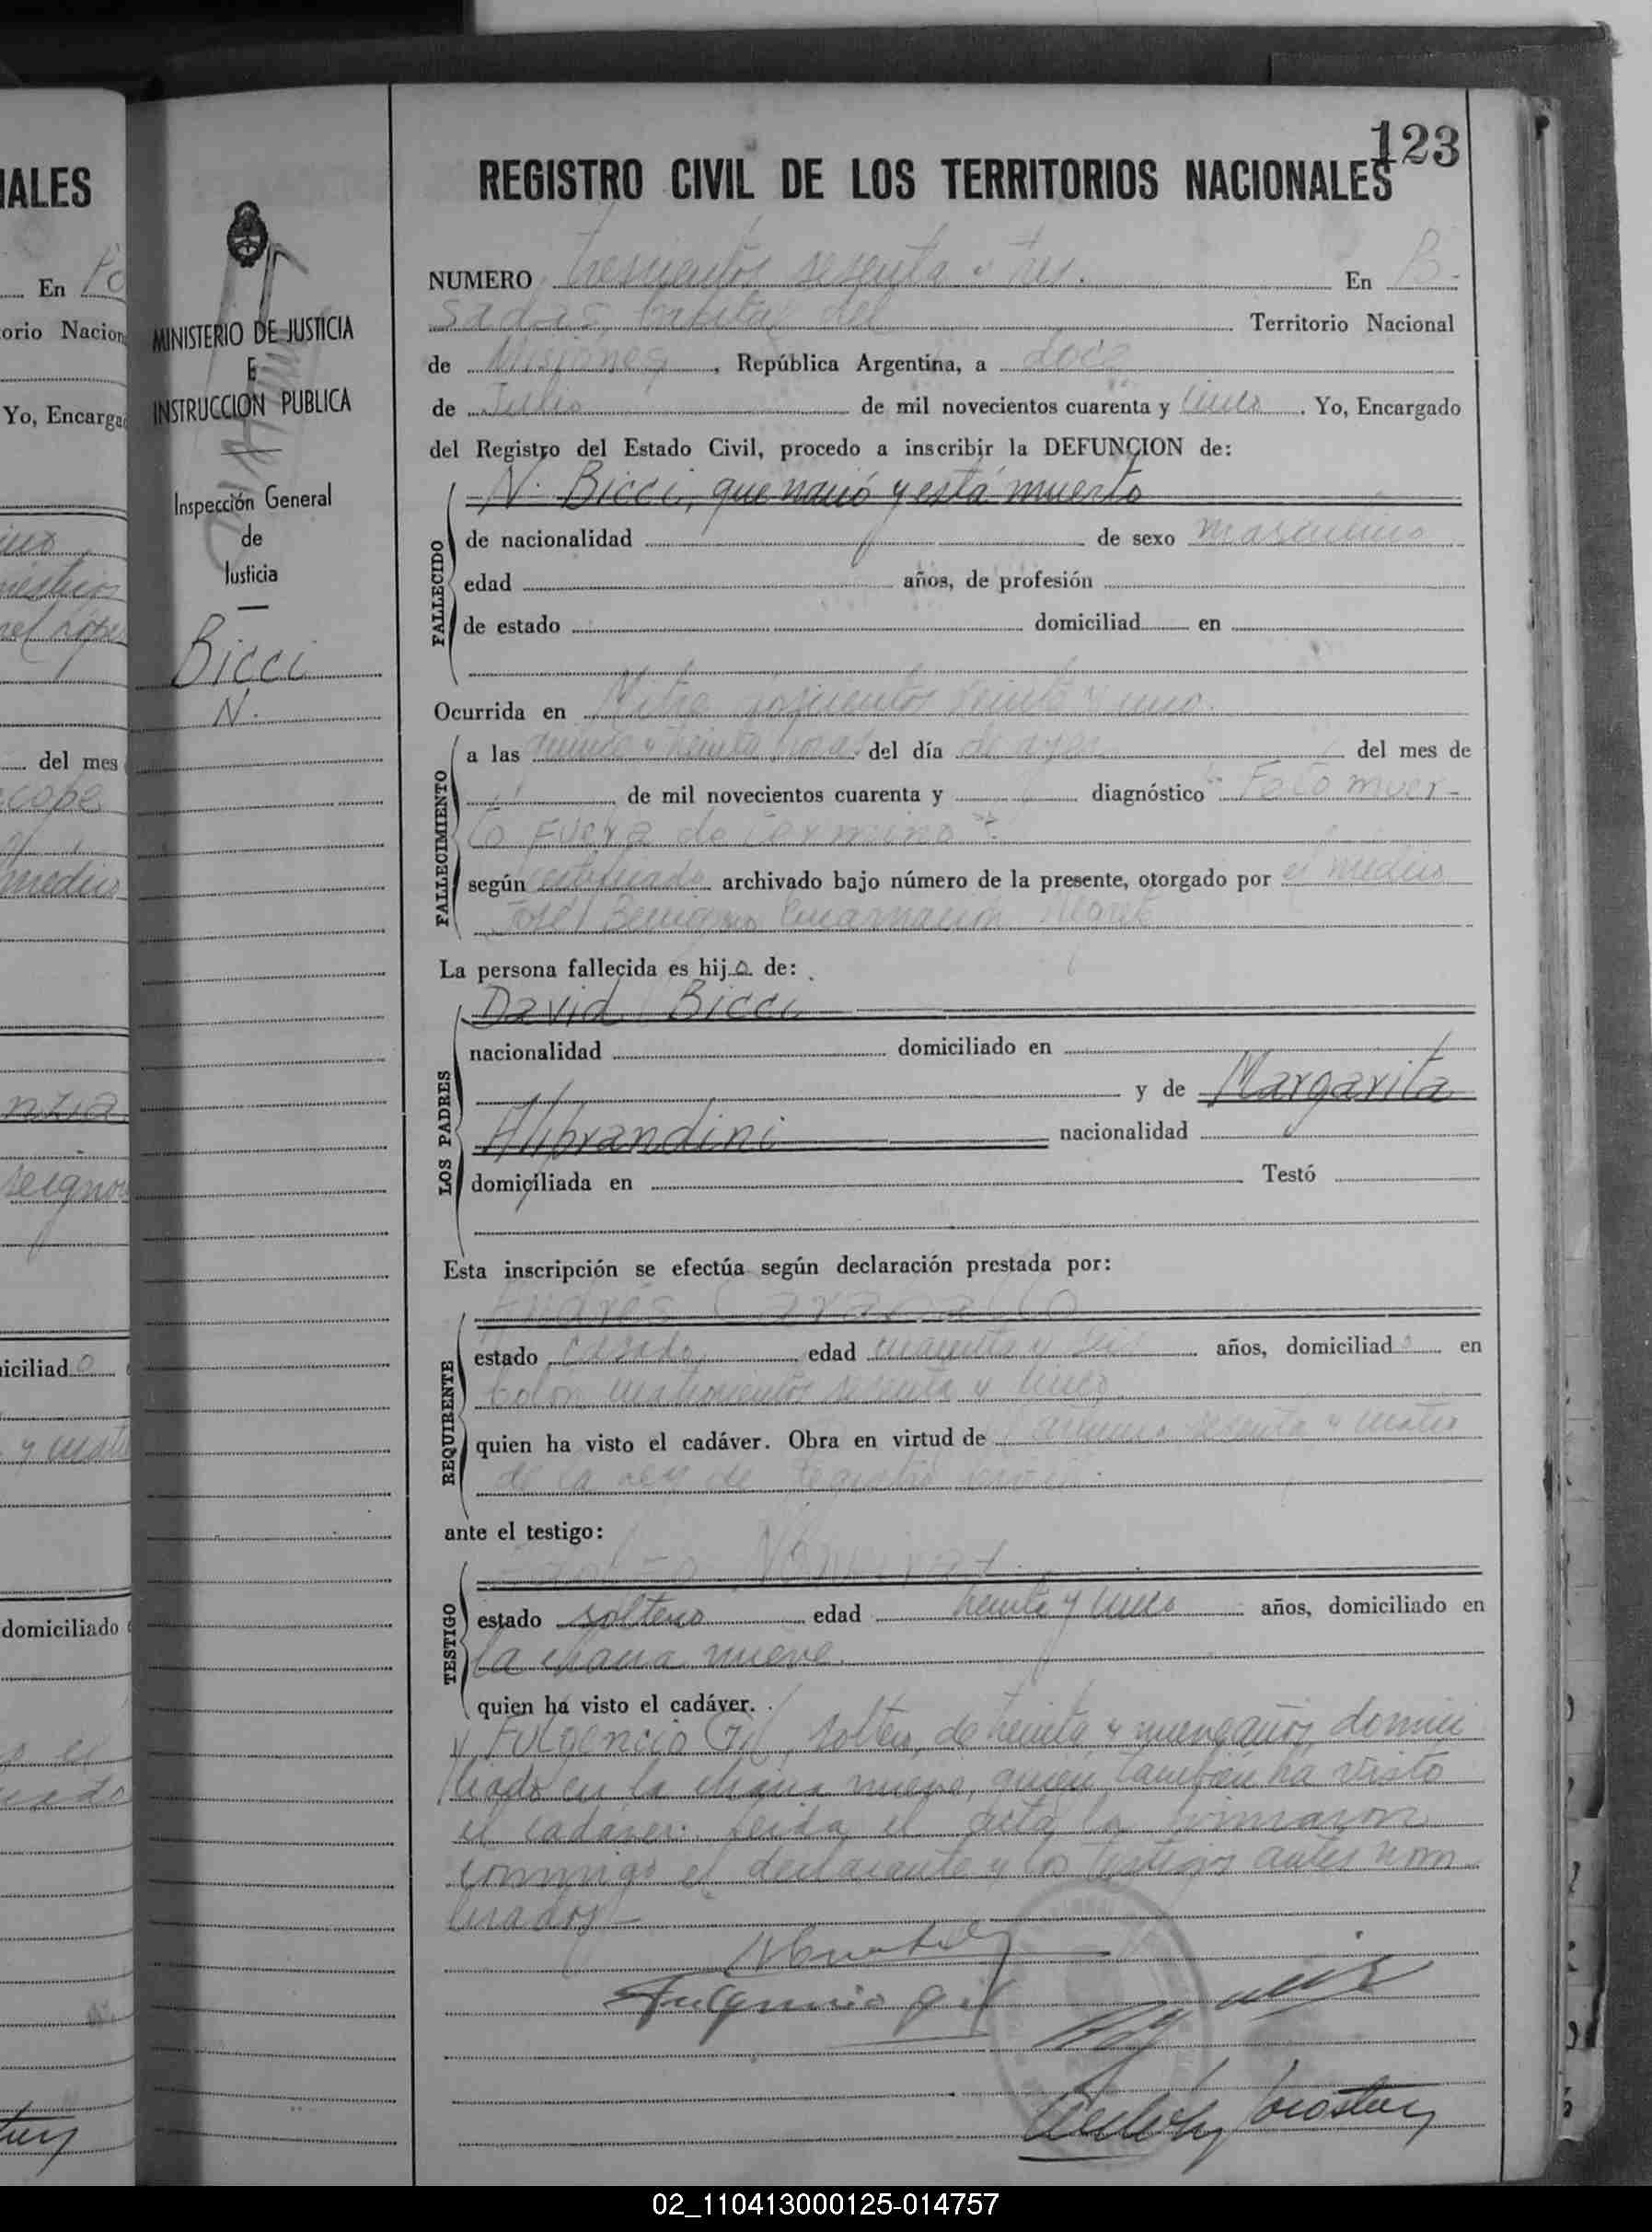 123
REGISTRO CIVIL DE LOS TERRITORIOS NACIONALES
NUMERO trescientos sesenta y tres. En Po-
sadas Capital del Territorio Nacional
de Misiones, República Argentina, a doce
de Julio de mil novecientos cuarenta y cinco. Yo, Encargado
del Registro del Estado Civil, procedo a inscribir la DEFUNCION de:
N. Bicci, que nació y está muerto
FALLECIDO
de nacionalidad de sexo masculino
edad años, de profesión
de estado domiciliad en
Ocurrida en Mitre veinte y uno.
FALLECIMIENTO
a las quince y treinta horas del día de ayer del mes de
de mil novecientos cuarenta y diagnóstico "Feto muer-
to fuera de termino".
según certificado archivado bajo número de la presente, otorgado por el médico
José Benigno Encarnación
La persona fallecida es hijo de:
LOS PADRES
David Bicci
nacionalidad domiciliado en
y de Margarita
Alibrandini nacionalidad
domiciliada en Testó
Esta inscripción se efectúa según declaración prestada por:
REQUIRENTE
Andrés
estado casado edad cuarenta y seis años, domiciliado en
Colon cuatrocientos sesenta y cinco
quien ha visto el cadáver. Obra en virtud de artículo sesenta y cuatro
de la ley de registro civil.
ante el testigo:
TESTIGO
estado soltero edad treinta y cinco años, domiciliado en
la chacra nueve.
quien ha visto el cadáver.
y Fulgencio Gil, soltero, de treinta y nueve años, domici
liado en la chacra nueve, quien también ha visto
el cadáver. Leida el acta la firmaron
conmigo el declarante y los testigos antes nom
brados
Fulgencio Gil
MINISTERIO DE JUSTICIA
E
INSTRUCCION PUBLICA
Inspección General
de
Justicia
Bicci
N.
IALES
En Po
orio Nacion
Yo, Encarga
del mes
iciliado
domiciliado
02_110413000125-014757